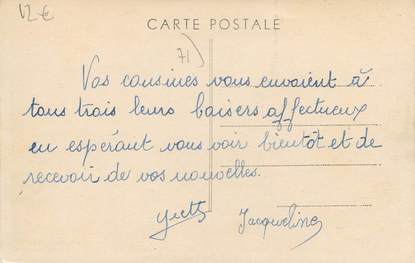 12€
CARTE POSTALE
71)
Vos cousines vous envoient à
tous trois leurs baisers affectueux
en espérant vous voir bientôt et de
recevoir de vos nouvelles.
Yvette Jacqueline